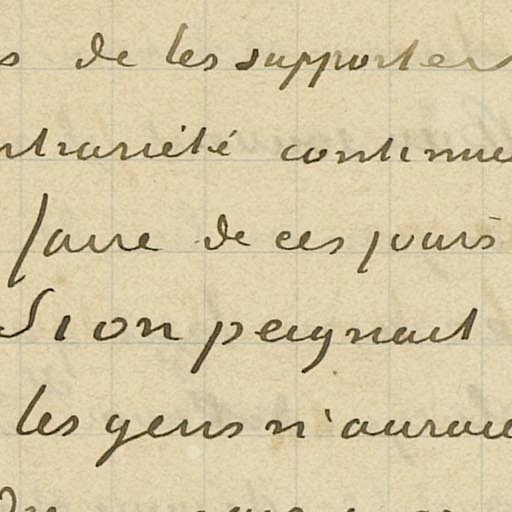 s de les supporter
ntrariété continue
faire de ces jours
Si on peignait
les gens n'aurai